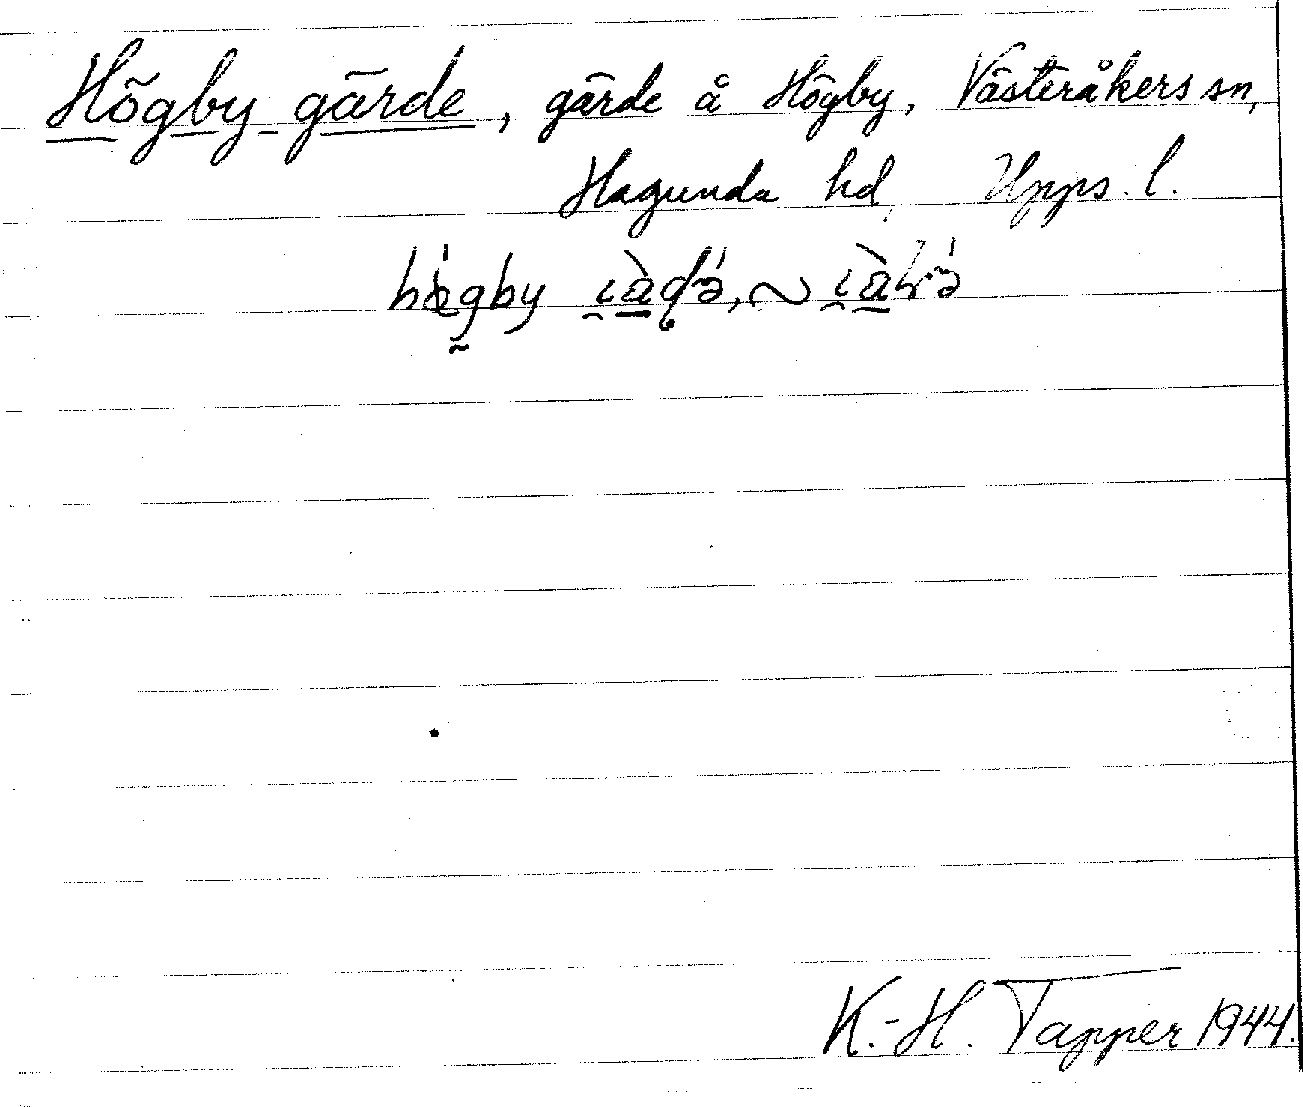 Högby gärde, gärde å Högby, Västeråkers sn,
Hagunda hd, Upps. l.
K.-H. Tapper 1944.